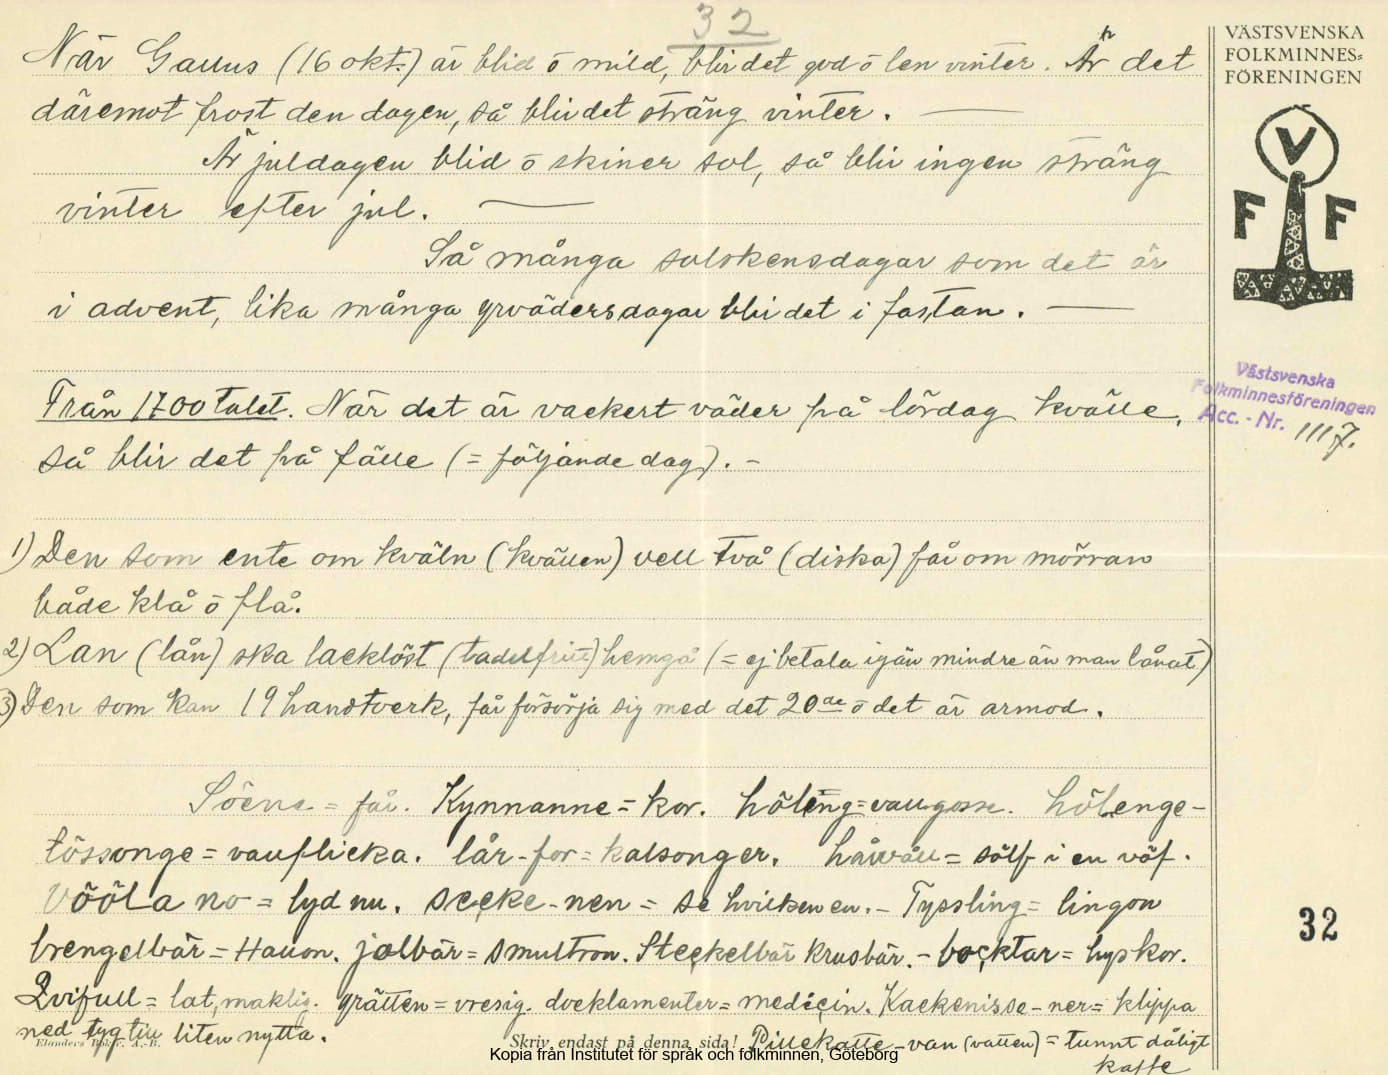 32
När Gallus (16 okt.) är blid ō mild, blir det god ō len vinter. Är det
däremot frost den dagen, så blir det sträng vinter. —
Är juldagen blid ō skiner sol, så blir ingen sträng
vinter efter jul. —
Så många solskensdagar som det är
i advent, lika många yrvädersdagar blir det i fastan. —
Från 1700 talet. När det är vackert väder på lördag kvälle,
så blir det på fälle (= följande dag). –
1) Den som ente om kväln (kvällen) vell två (diska) får om mörran
både klå ō flå.
2) Lan (lån) ska lacklöst (tadelfritt) hemgå (= ej betala igän mindre än man lånat)
3) Den som kan 19 handtverk, får försörja sig med det 20de ō det är armod.
Söena = får. Kynnanne = kor. höleng = vallgosse. hölenge-
tössonge = vallflicka. lår-for = kalsonger. = sölf i en väf.
Vööla no = lyd nu. secke-nen = se hvilken en. – Tyssling = lingon
brengelbär = Hallon. jolbär = smultron. Steckelbär krusbär. – bocktar = hyskor.
Qvifull = lat, maklig. grätten = vresig. docklamenter = medicin. Kackenisse-ner = klippa
ned tyg till liten nytta.
Pillekatte-van (vatten) = tunnt dåligt
kaffe
Elanders Boktr. A.-B.
Skriv endast på denna sida!
Kopia från Institutet för språk och folkminnen, Göteborg
VÄSTSVENSKA
FOLKMINNES=
FÖRENINGEN
V
F F
Västsvenska
Folkminnesföreningen
Acc. - Nr. 1117.
32